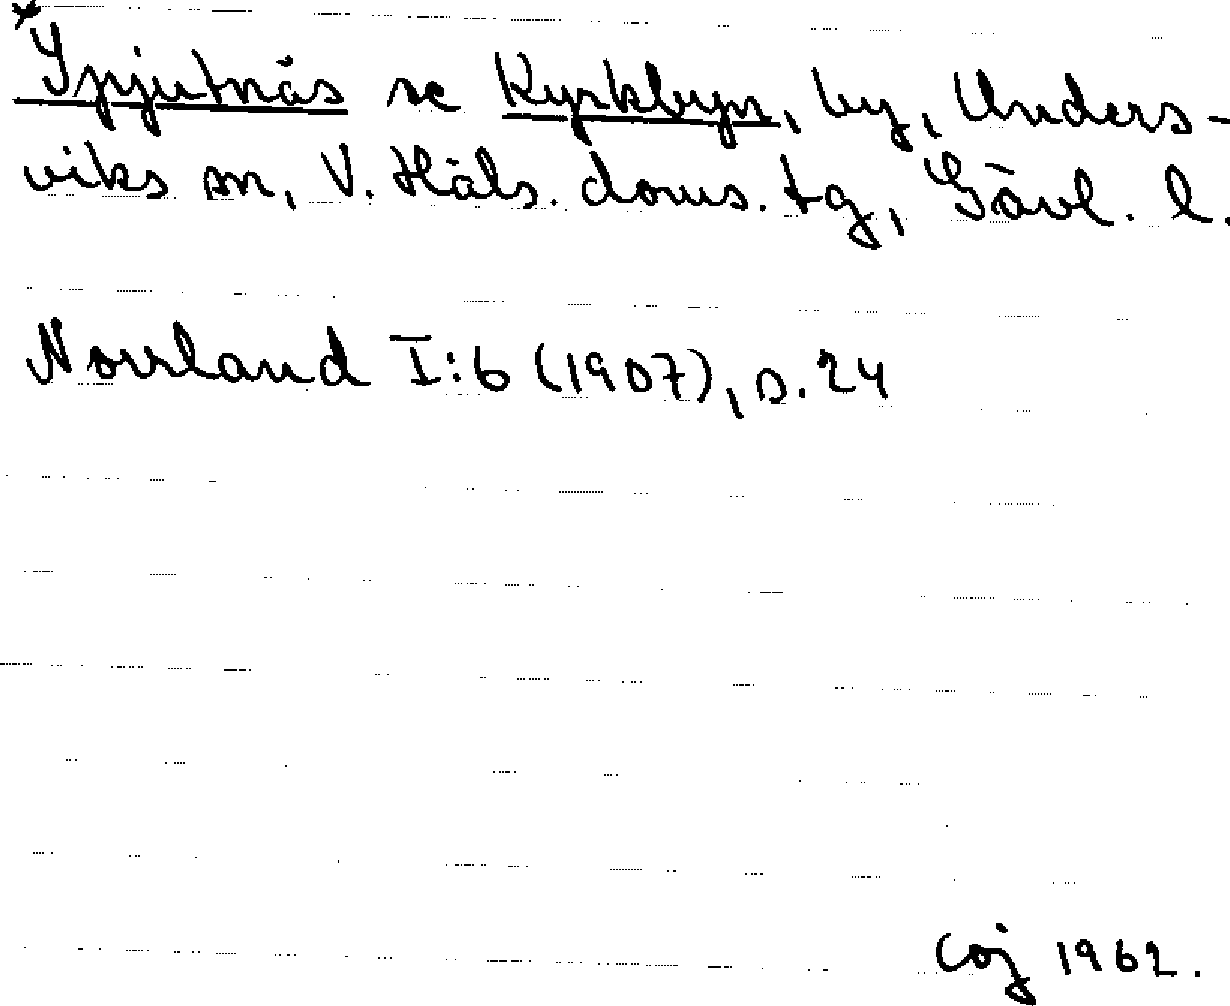 *Spjutnäs se Kyrkbyn, by, Unders-
viks sn, V. Häls. doms. tg, Gävl. l.
Norrland I:6 (1907), s. 24
Coj 1962.